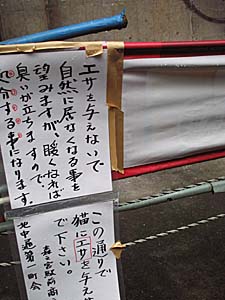 エサを与えないで
自然に居なくなる事を
望みますが、暖くなれば
臭いが立ちますので
処分する事になります。
この通りで
猫にエサを与え
で下さい。
森之宮駅前商
北中通第一町会